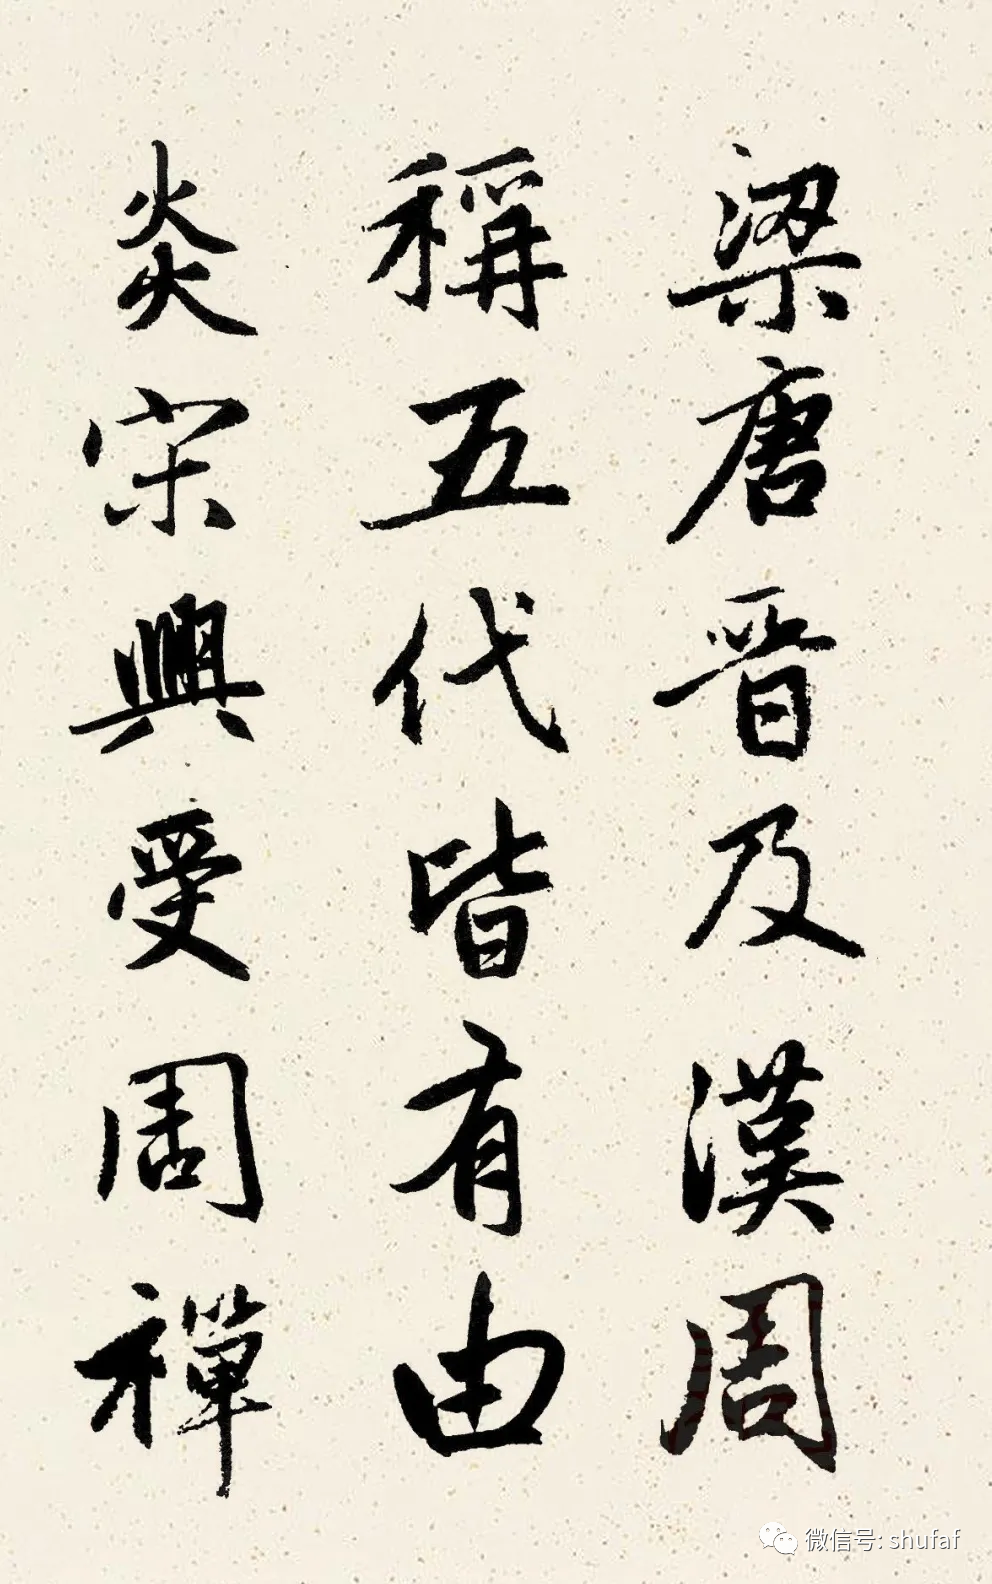 梁唐晋及漢周
稱五代皆有由
炎宋興受周禪
微信号: shufaf